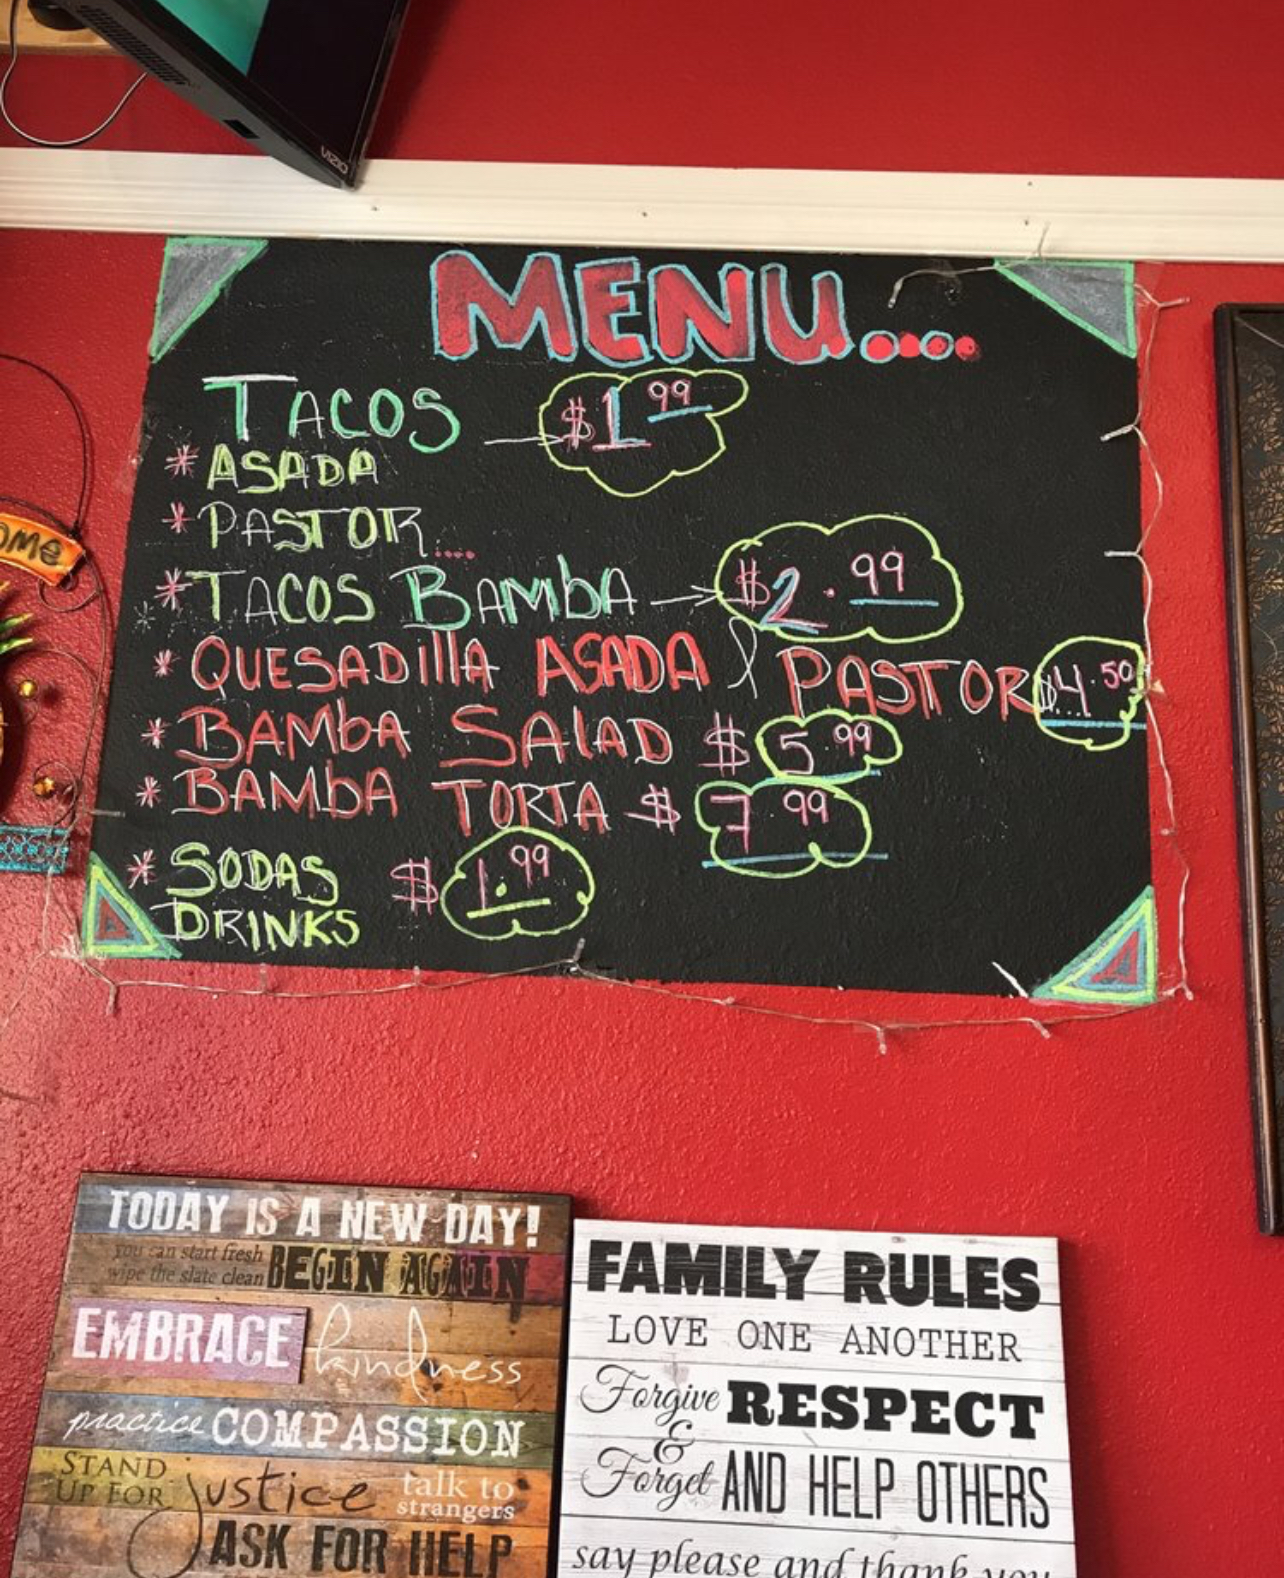 VIZIO
MENU....
TACOS $1 99
* ASADA
* PASTOR....
* TACOS BAMBA → $2.99
* QUESADIllA ASADA / PASTOR $4.50
* BAMBA SALAD $ 5 99
* BAMBA TORTA $ 7 99
* SODAS $ 1.99
DRINKS
OME
TODAY IS A NEW DAY!
you can start fresh
wipe the slate clean BEGIN AGAIN
EMBRACE kindness
practice COMPASSION
STAND
UP FOR justice talk to
strangers
ASK FOR HELP
FAMILY RULES
LOVE ONE ANOTHER
Forgive RESPECT
&
Forget AND HELP OTHERS
say please and thank you